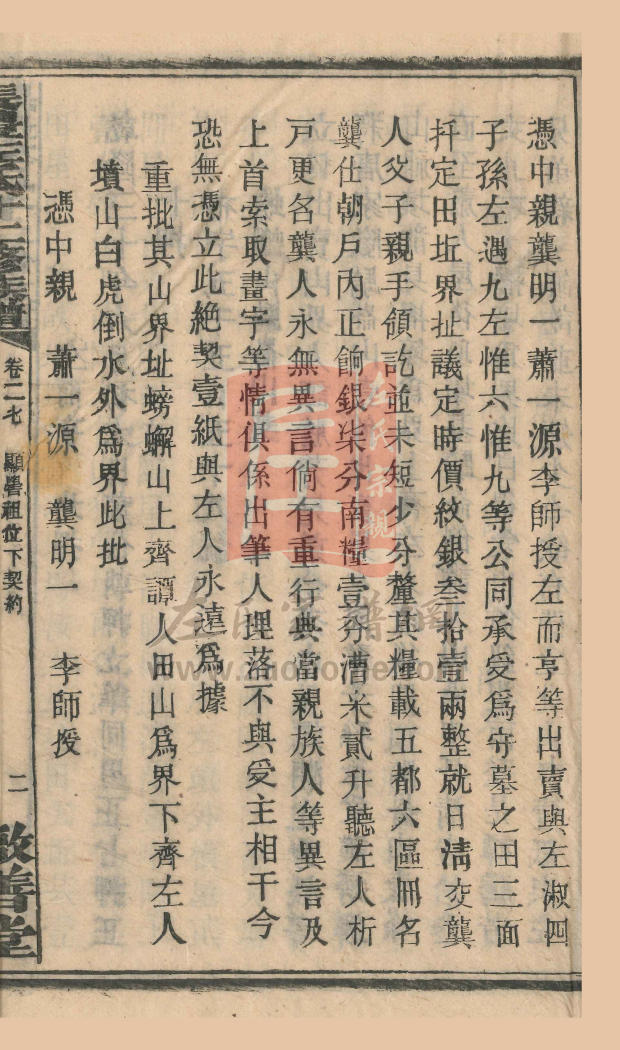 憑中親龔明一蕭一源李師授左而亨等出賣與左淑四
子孫左遇九左惟六惟九等公同承受爲守墓之田三面
扞定田坵界扯議定時價紋銀叁拾壹兩整就日淸交龔
人父子親手領訖並未短少分釐其糧載五都六區冊名
龔仕朝戶內正餉銀柒分南糧壹分漕米貳升聽左人析
戶更名龔人永無異言倘有重行典當親族人等異言及
上首索取畫字等情俱係出筆人理落不與受主相干今
恐無憑立此絶契壹紙與左人永遠爲據
重批其山界址螃蠏山上齊譚人田山爲界下齊左人
墳山白虎倒水外爲界此批
憑中親 蕭一源 龔明一 李師授
十二修族譜 卷二七 顯譽祖位下契約 二 敦善堂
左氏宗親
左氏宗譜網